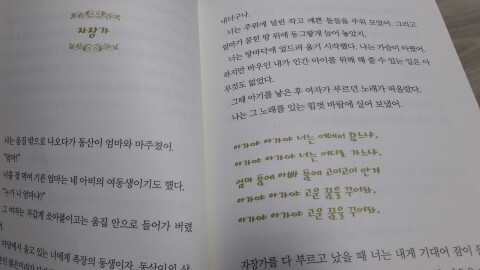 자장가
너는 움집 밖으로 나오다가 동산이 엄마와 마주쳤어.
"엄마!"
너를 젖 먹여 기른 엄마는 네 아비의 여동생이기도 했다.
"누가 니 엄마냐?"
그 여자는 차갑게 쏘아붙이고는 움집 안으로 들어가 버렸
마당에서 울고 있는 너에게 족장의 동생이자, 동산이의
내더구나.
너는 주위에 널린 작고 예쁜 돌들을 주워 모았어. 그리고
엄마가 묻힌 땅 위에 동그랗게 늘어 놓았지.
너는 땅바닥에 엎드려 울기 시작했다. 나는 가슴이 아팠어.
하지만 바우인 내가 인간 아이를 위해 해 줄 수 있는 일은 아
무것도 없었다.
그때 아기를 낳은 후 여자가 부르던 노래가 떠올랐다.
나는 그 노래를 있는 힘껏 바람에 실어 보냈어.
아가야 아가야 너는 어데서 왔느냐.
아가야 아가야 너는 어디로 가느냐.
엄마 품에 아빠 품에 고이고이 안겨
아가야 아가야 고운 꿈을 꾸어라.
아가야 아가야 고운 꿈을 꾸어라.
자장가를 다 부르고 났을 때 너는 내게 기대어 잠이